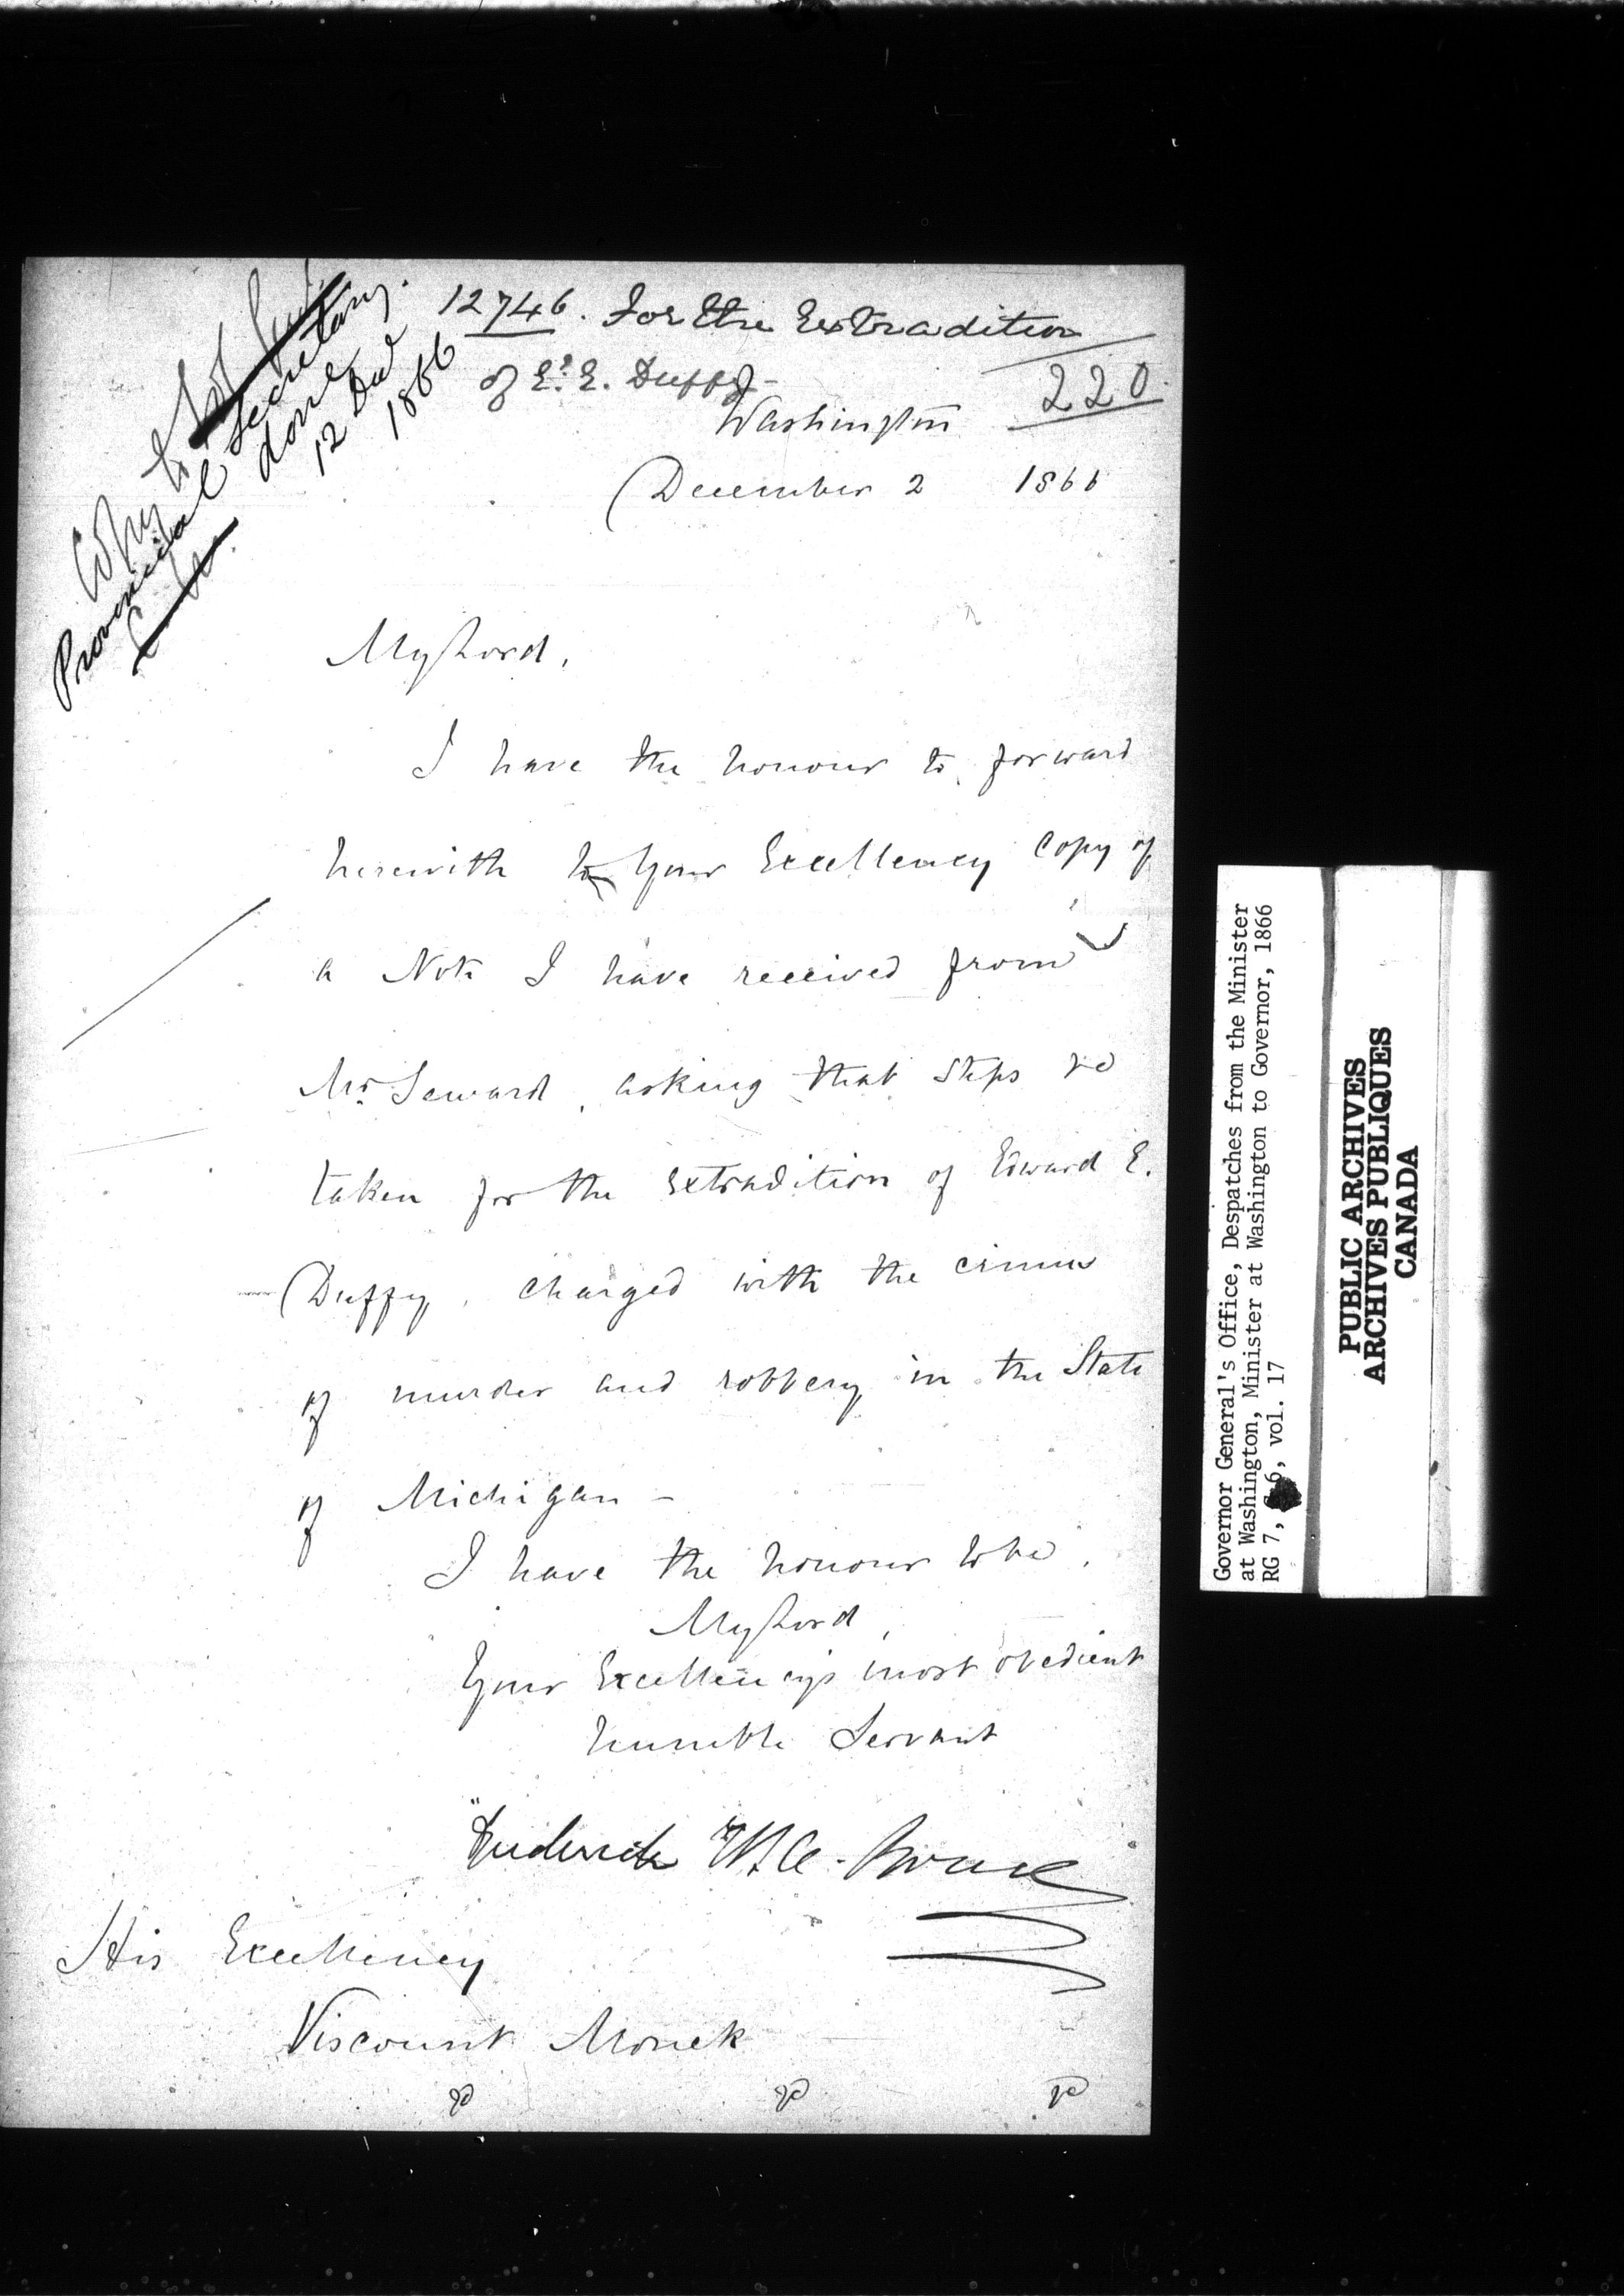 12746. For the Extradition
of E. E. Duffy-
220.
Washington
December 2 1866
Copy to
Provincial Secretary.
done
12 Dec
1866
My Lord,
I have the honour to forward
herewith to Your Excellency Copy of
a Note I have received from
Mr Seward, asking that steps be
taken for the extradition of Edward E.
Duffy, charged with the crimes
of murder and robbery in the State
of Michigan -
I have the honour to be,
My Lord,
Your Excellency's most obedient
humble Servant
Frederick W. A. Bruce
His Excellency
Viscount Monck
&c &c &c
Governor General's Office, Despatches from the Minister
at Washington, Minister at Washington to Governor, 1866
RG 7, G 6, vol. 17
PUBLIC ARCHIVES
ARCHIVES PUBLIQUES
CANADA